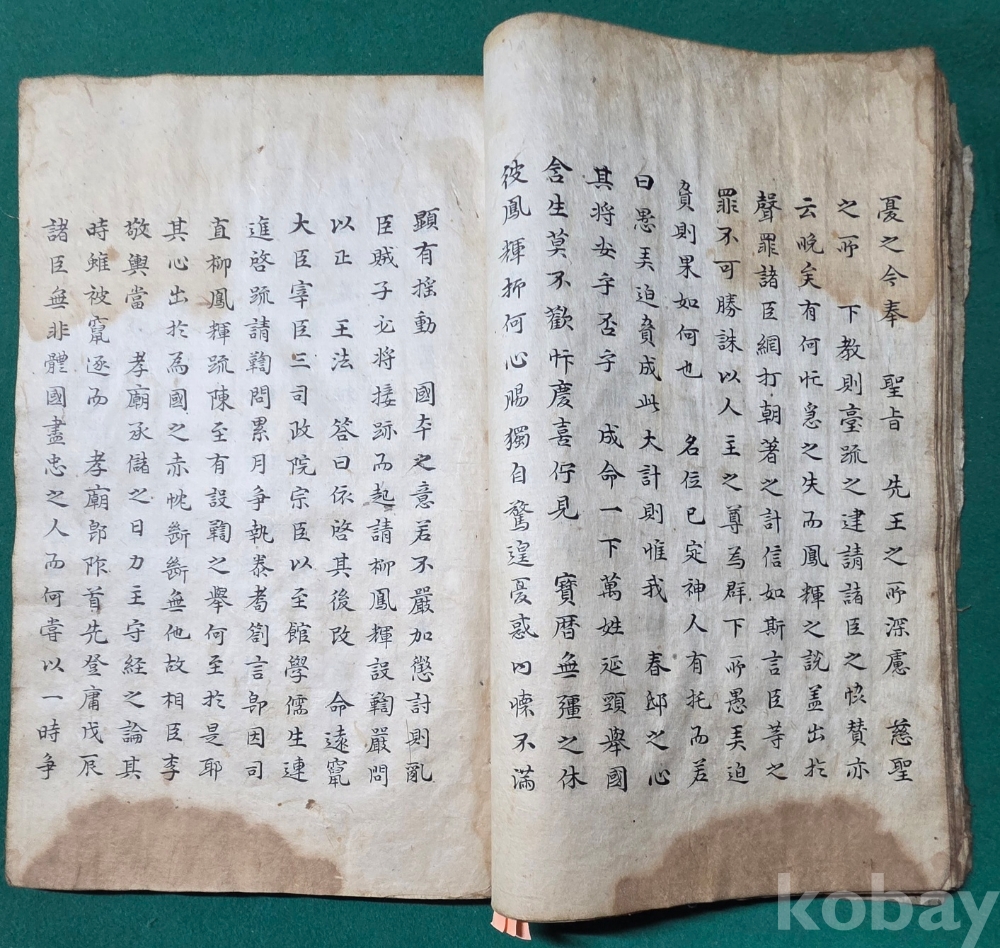 憂之今奉 聖旨 先王之所深慮 慈聖
之所 下教則臺疏之建請諸臣之恊賛亦
云晩矣有何忙急之失而鳳輝之說盖出扵
聲罪諸臣網打朝著之計信如斯言臣等之
罪不可勝誅以人主之尊為群下所愚弄迫
貟則果如何也 名位已定神人有托而若
曰愚弄迫貟成此大計則惟我 春邸之心
其将安乎否乎 成命一下萬姓延頸舉國
含生莫不歡忻慶喜佇見 寶曆無彊之休
彼鳳輝抑何心膓獨自驚遑憂惑内懐不滿
顕有揺動 國夲之意若不嚴加懲討則亂
臣賊子必将接跡而起請柳鳳輝設鞫嚴問
以正 王法 答曰依啓其後改 命遠竄
大臣宰臣三司政院宗臣以至館學儒生連
進啓疏請鞫問累月争執泰耉劄言卽因司
直柳鳳輝疏陳至有設鞫之舉何至扵是耶
其心出扵為國之赤忱断断無他故相臣李
敬輿當 孝廟承儲之日力主守經之論其
時雖被竄逐而 孝廟卽阼首先登庸戊辰
諸臣無非體國盡忠之人而何甞以一時争
kobay